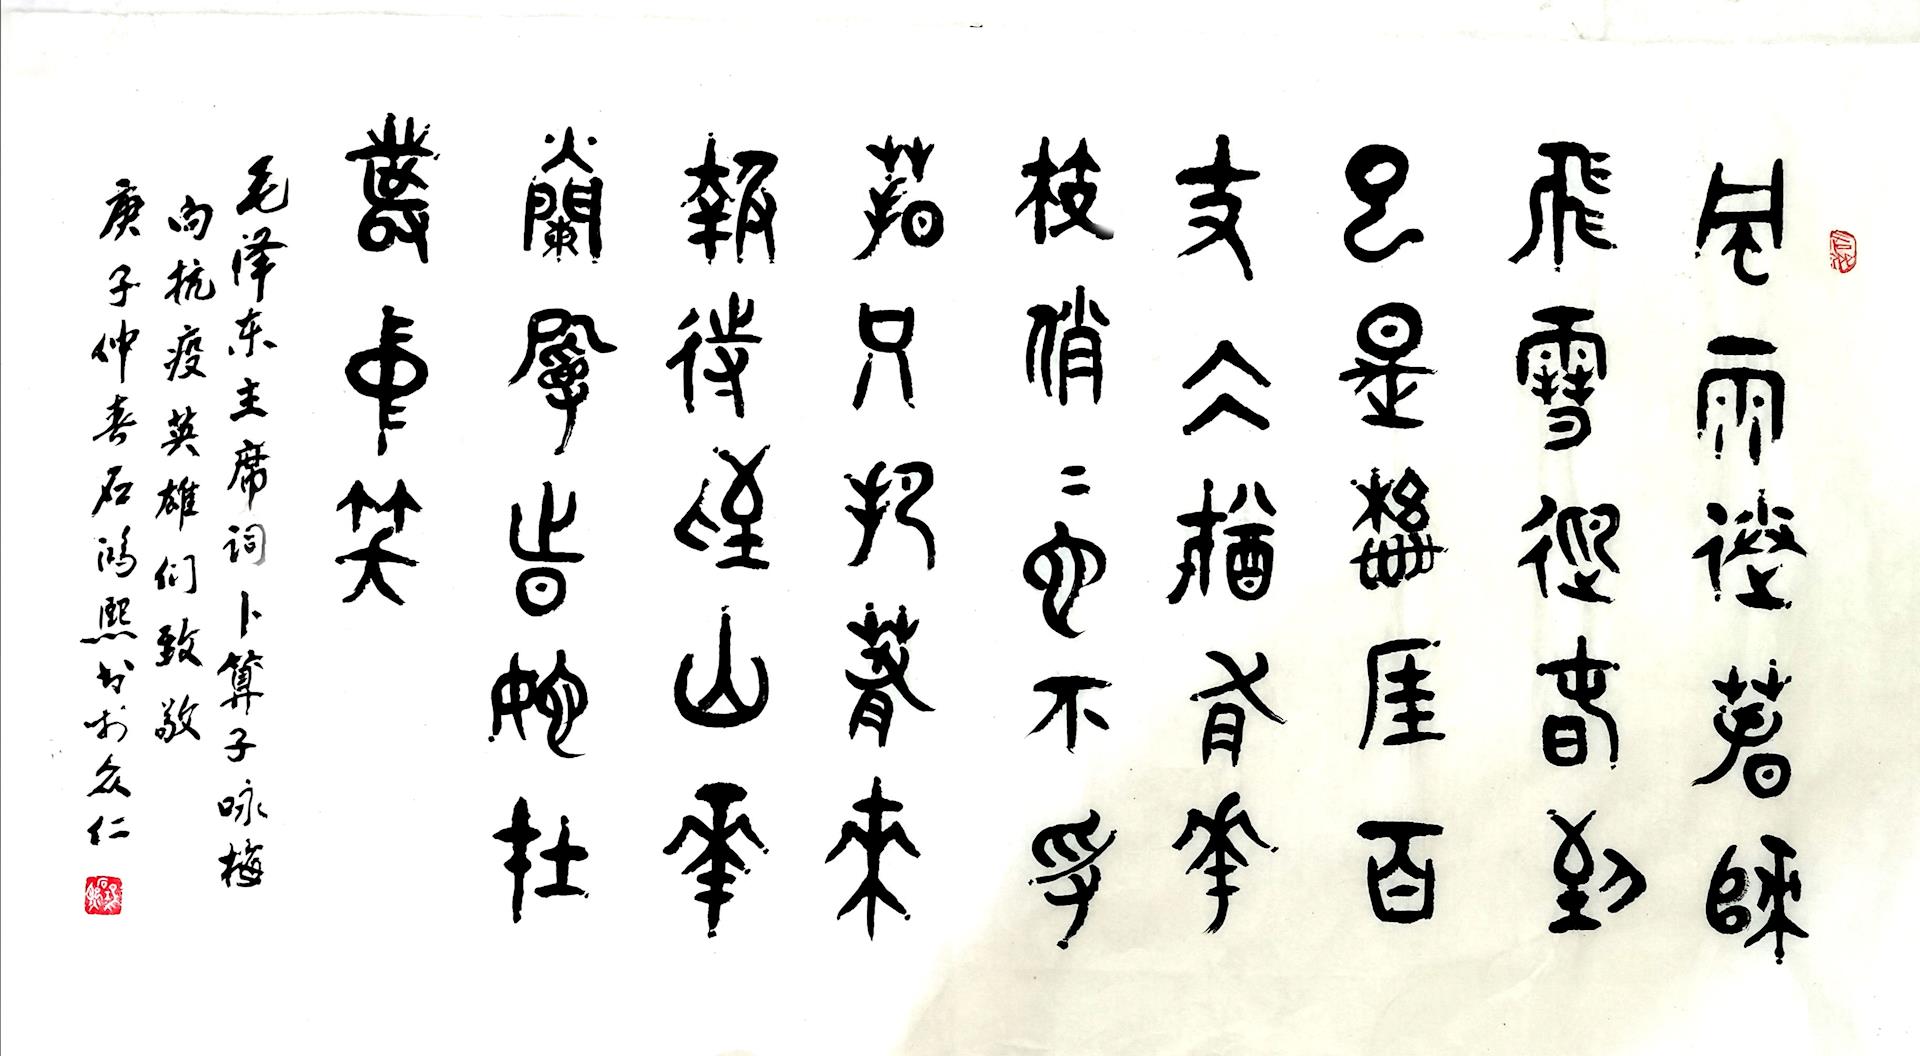 風雨送春歸
飛雪迎春到
已是懸崖百
丈冰猶有花
枝俏〻也不爭
春只把春來
報待到山花
爛漫時她在
叢中笑
毛泽东主席词卜算子咏梅
向抗疫英雄们致敬
庚子仲春石鸿熙书於众仁